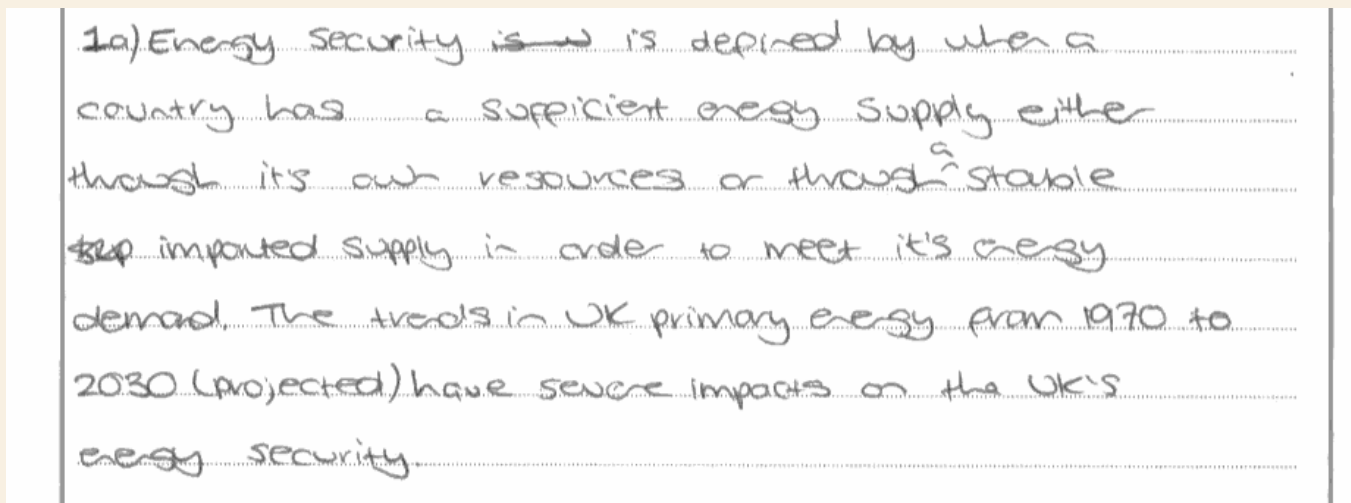 1a) Energy security is is defined by when a
country has a sufficient energy supply either
through it's own resources or through a stable
imported supply in order to meet it's energy
demand. The trends in UK primary energy from 1970 to
2030 (projected) have severe impacts on the UK's
energy security.